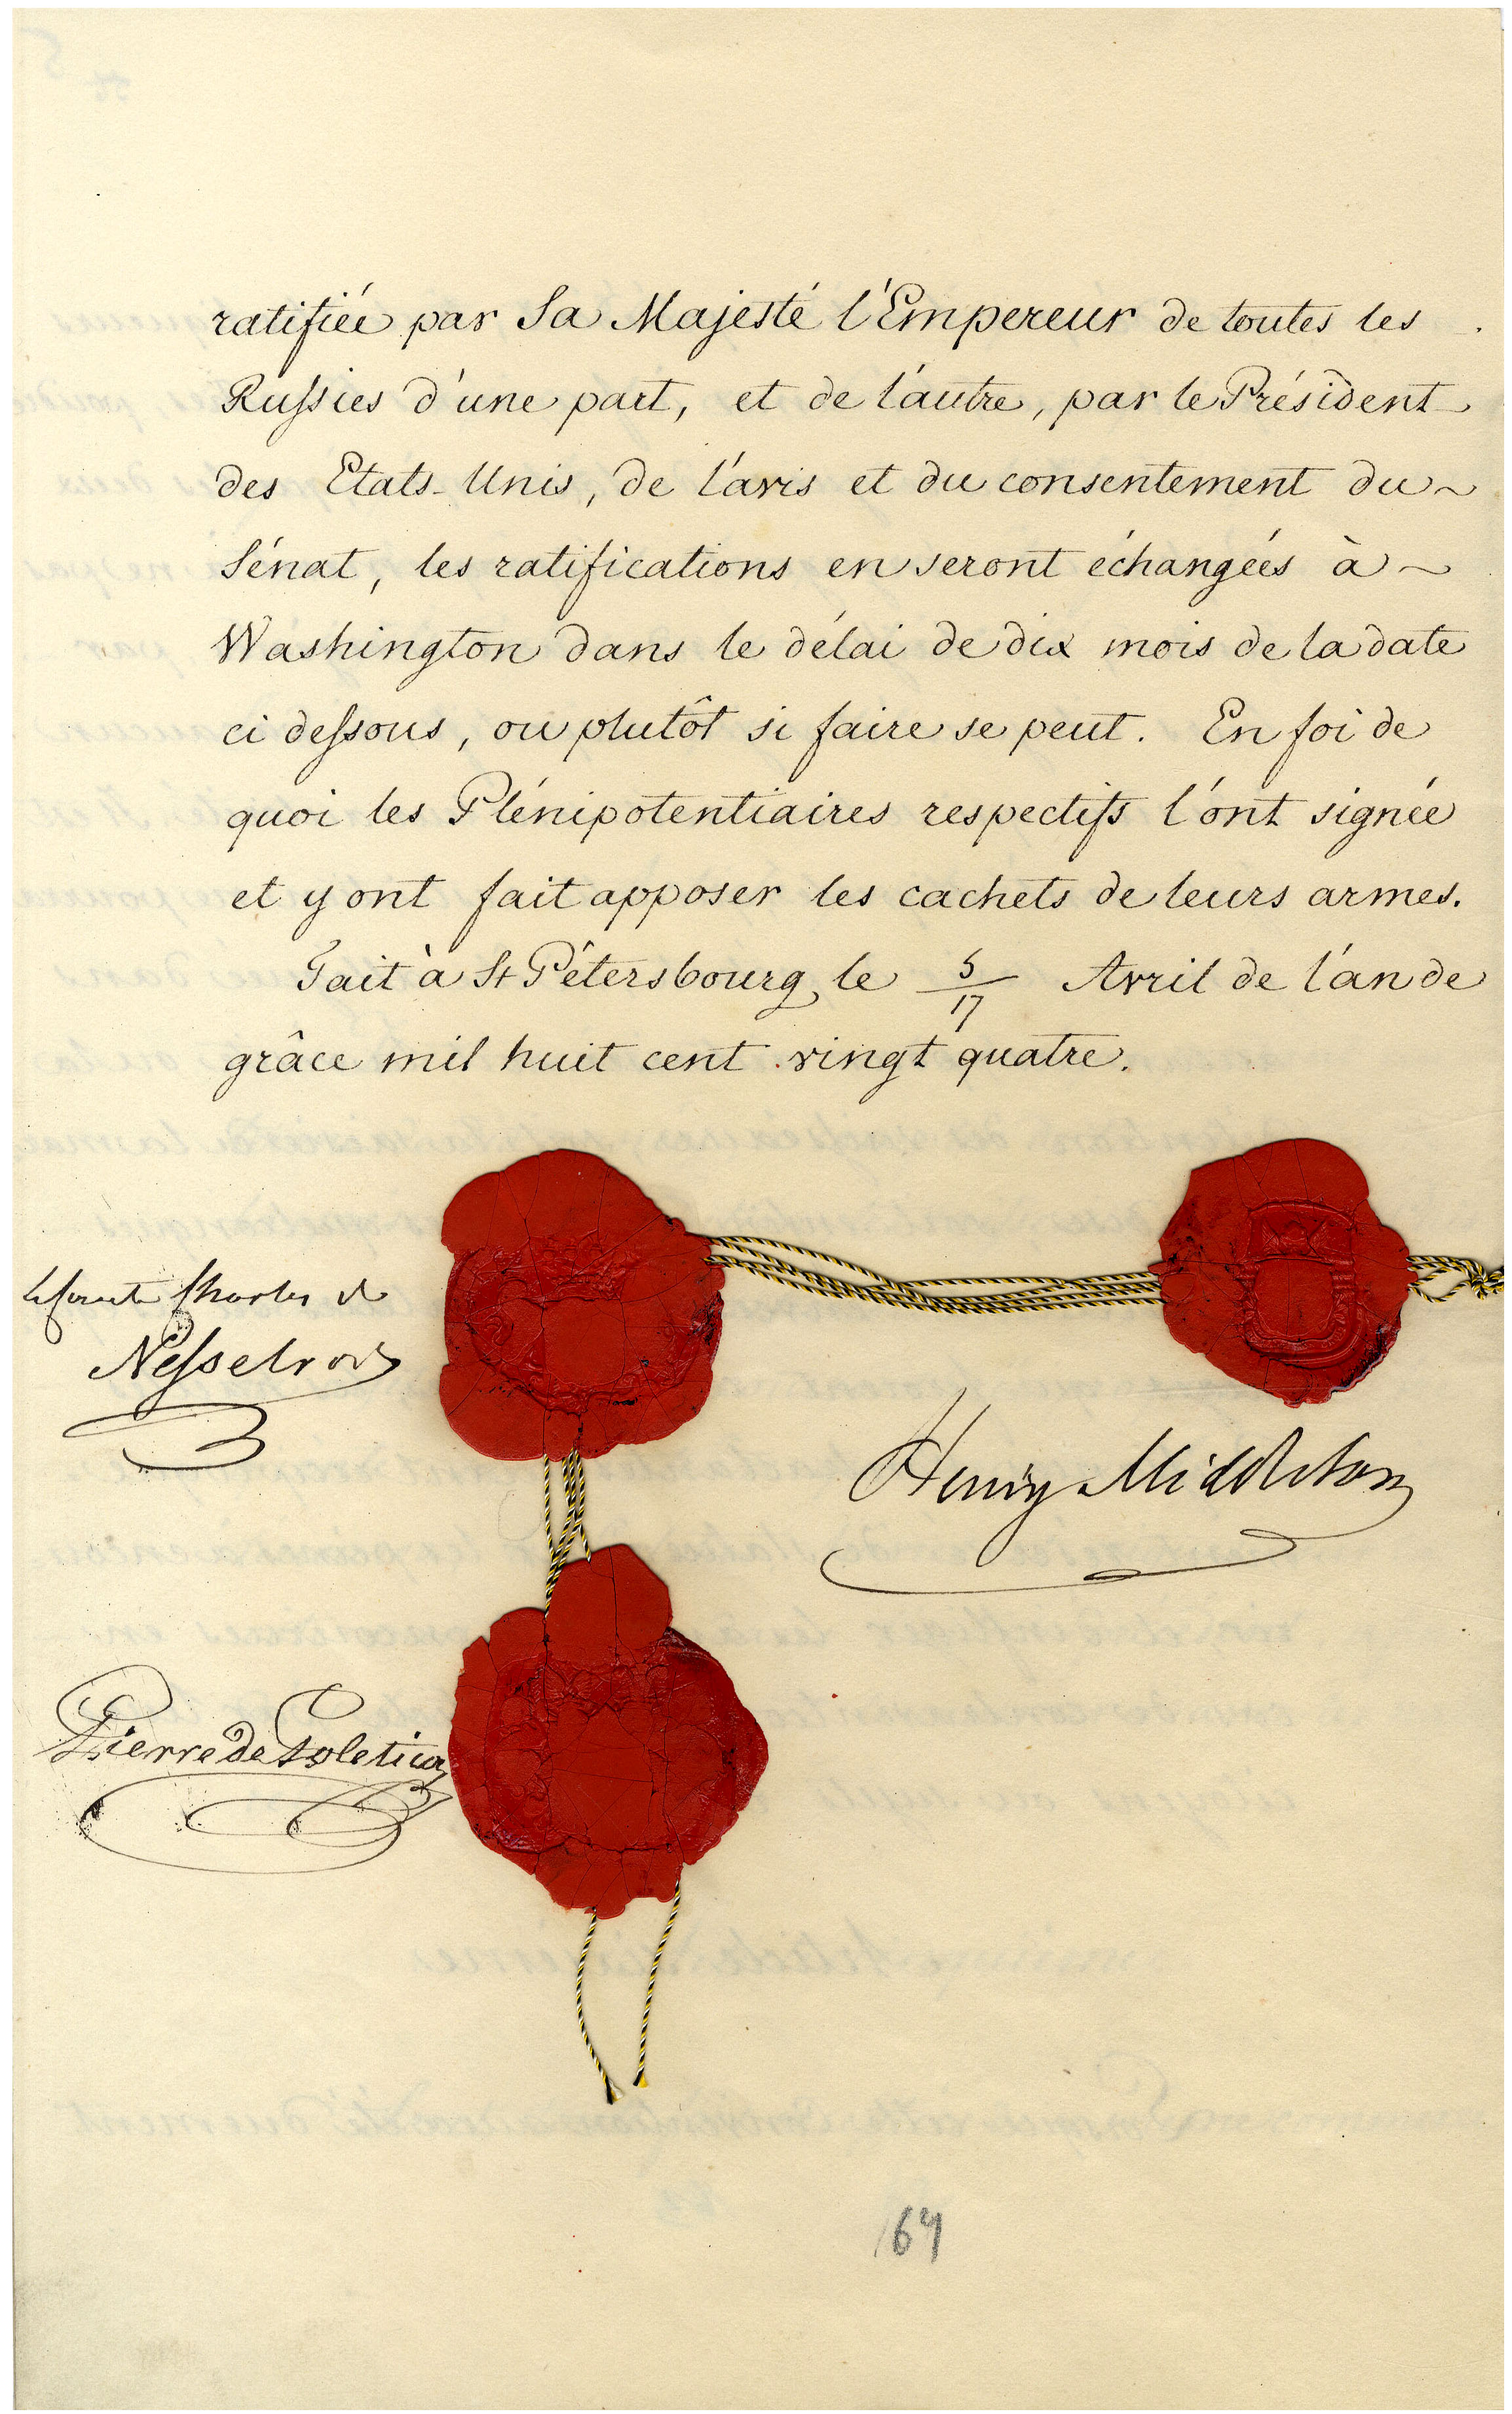 ratifiée par Sa Majesté l'Empereur de toutes les
Russies d'une part, et de l'autre, par le Président
des Etats-Unis, de l'avis et du consentement du
Sénat, les ratifications en seront échangées à
Washington dans le délai de dix mois de la date
ci dessous, ou plutôt si faire se peut. En foi de
quoi les Plénipotentiaires respectifs l'ont signée
et y ont fait apposer les cachets de leurs armes.
Fait à St Pétersbourg, le 5/17 Avril de l'an de
grâce mil huit cent vingt quatre.
Le Comte Charles de
Nesselrode
Henry Middleton
Pierre de Poletica